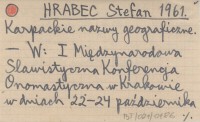 HRABEC Stefan 1961.
Karpackie nazwy geograficzne.
— W: I Międzynarodowa
Slawistyczna Konferencja
Onomastyczna w Krakowie
w dniach 22-24 października